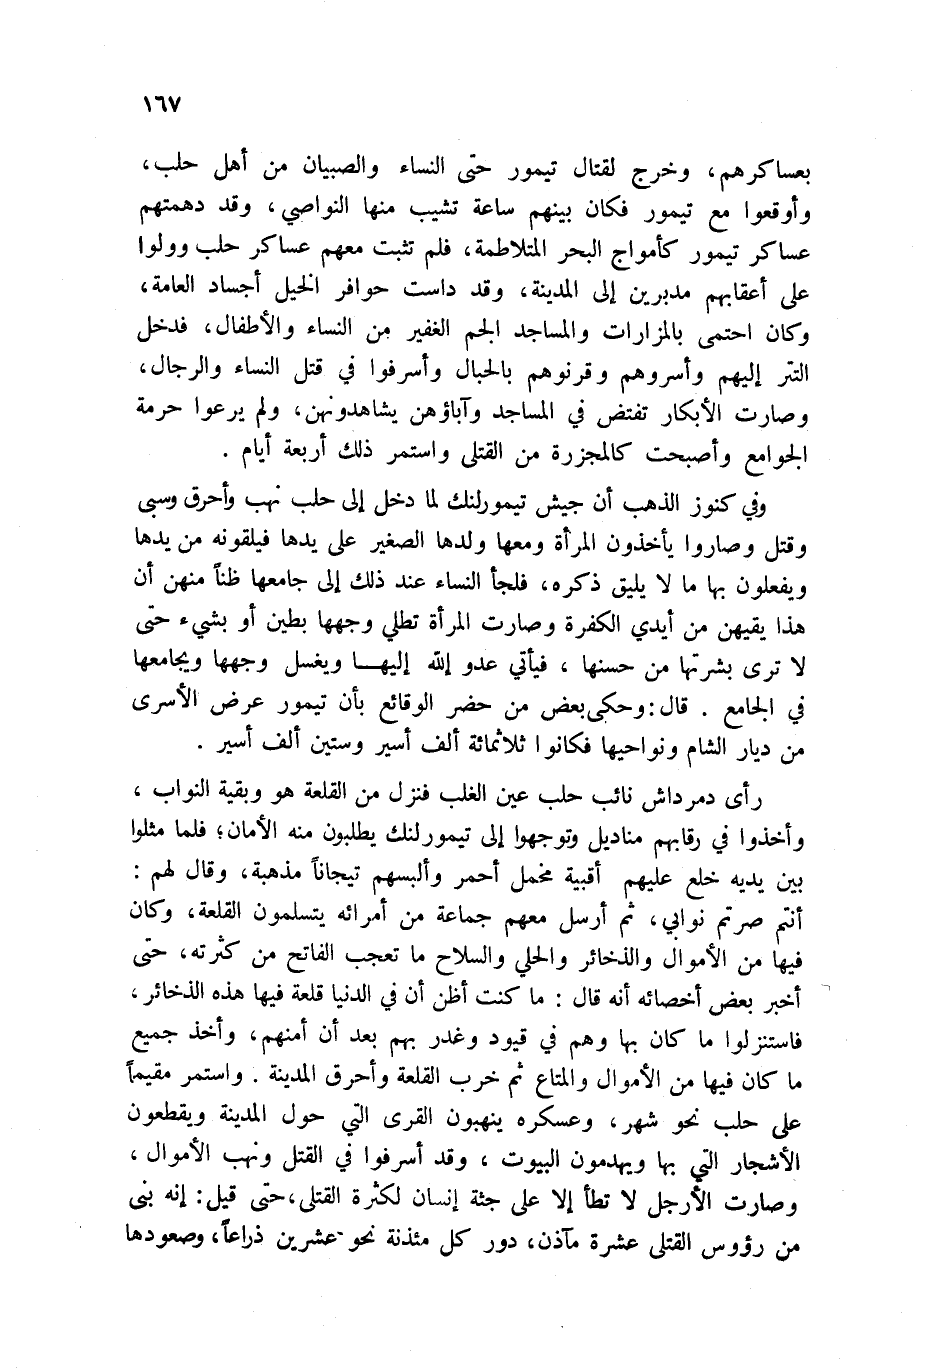 ١٦٧
بعساكرهم، وخرج لقتال تيمور حتى النساء والصبيان من أهل حلب،
وأوقعوا مع تيمور فكان بينهم ساعة تشيب منها النواصي، وقد دهمتهم
عساكر تيمور كأمواج البحر المتلاطمة، فلم تثبت معهم عساكر حلب وولوا
على أعقابهم مدبرين إلى المدينة، وقد داست حوافر الخيل أجساد العامة،
وكان احتمى بالمزارات والمساجد الجم الغفير من النساء والأطفال، فدخل
التتر إليهم وأسروهم وقرنوهم بالحبال وأسرفوا في قتل النساء والرجال،
وصارت الأبكار تفتض في المساجد وآباؤهن يشاهدونهن، ولم يرعوا حرمة
الجوامع وأصبحت كالمجزرة من القتلى واستمر ذلك أربعة أيام .
وفي كنوز الذهب أن جيش تيمورلنك لما دخل إلى حلب نهب وأحرق وسبى
وقتل وصاروا يأخذون المرأة ومعها ولدها الصغير على يدها فيلقونه من يدها
ويفعلون بها ما لا يليق ذكره، فلجأ النساء عند ذلك إلى جامعها ظناً منهن أن
هذا يقيهن من أيدي الكفرة وصارت المرأة تطلي وجهها بطين أو بشيء حتى
لا ترى بشرتها من حسنها ، فيأتي عدو الله إليهـا ويغسل وجهها ويجامعها
في الجامع . قال: وحكى بعض من حضر الوقائع بأن تيمور عرض الأسرى
من ديار الشام ونواحيها فكانوا ثلاثمائة ألف أسير وستين ألف أسير .
رأى دمرداش نائب حلب عين الغلب فنزل من القلعة هو وبقية النواب ،
وأخذوا في رقابهم مناديل وتوجهوا إلى تيمورلنك يطلبون منه الأمان؛ فلما مثلوا
بين يديه خلع عليهم أقبية مخمل أحمر وألبسهم تيجاناً مذهبة، وقال لهم :
أنتم صرتم نوابي، ثم أرسل معهم جماعة من أمرائه يتسلمون القلعة، وكان
فيها من الأموال والذخائر والحلي والسلاح ما تعجب الفاتح من كثرته، حتى
أخبر بعض أخصائه أنه قال : ما كنت أظن أن في الدنيا قلعة فيها هذه الذخائر،
فاستنزلوا ما كان بها وهم في قيود وغدر بهم بعد أن أمنهم، وأخذ جميع
ما كان فيها من الأموال والمتاع ثم خرب القلعة وأحرق المدينة . واستمر مقيماً
على حلب نحو شهر، وعسكره ينهبون القرى التي حول المدينة ويقطعون
الأشجار التي بها ويهدمون البيوت ، وقد أسرفوا في القتل ونهب الأموال ،
وصارت الأرجل لا تطأ إلا على جثة إنسان لكثرة القتلى، حتى قيل: إنه بنى
من رؤوس القتلى عشرة مآذن، دور كل مئذنة نحو عشرين ذراعاً، وصعودها